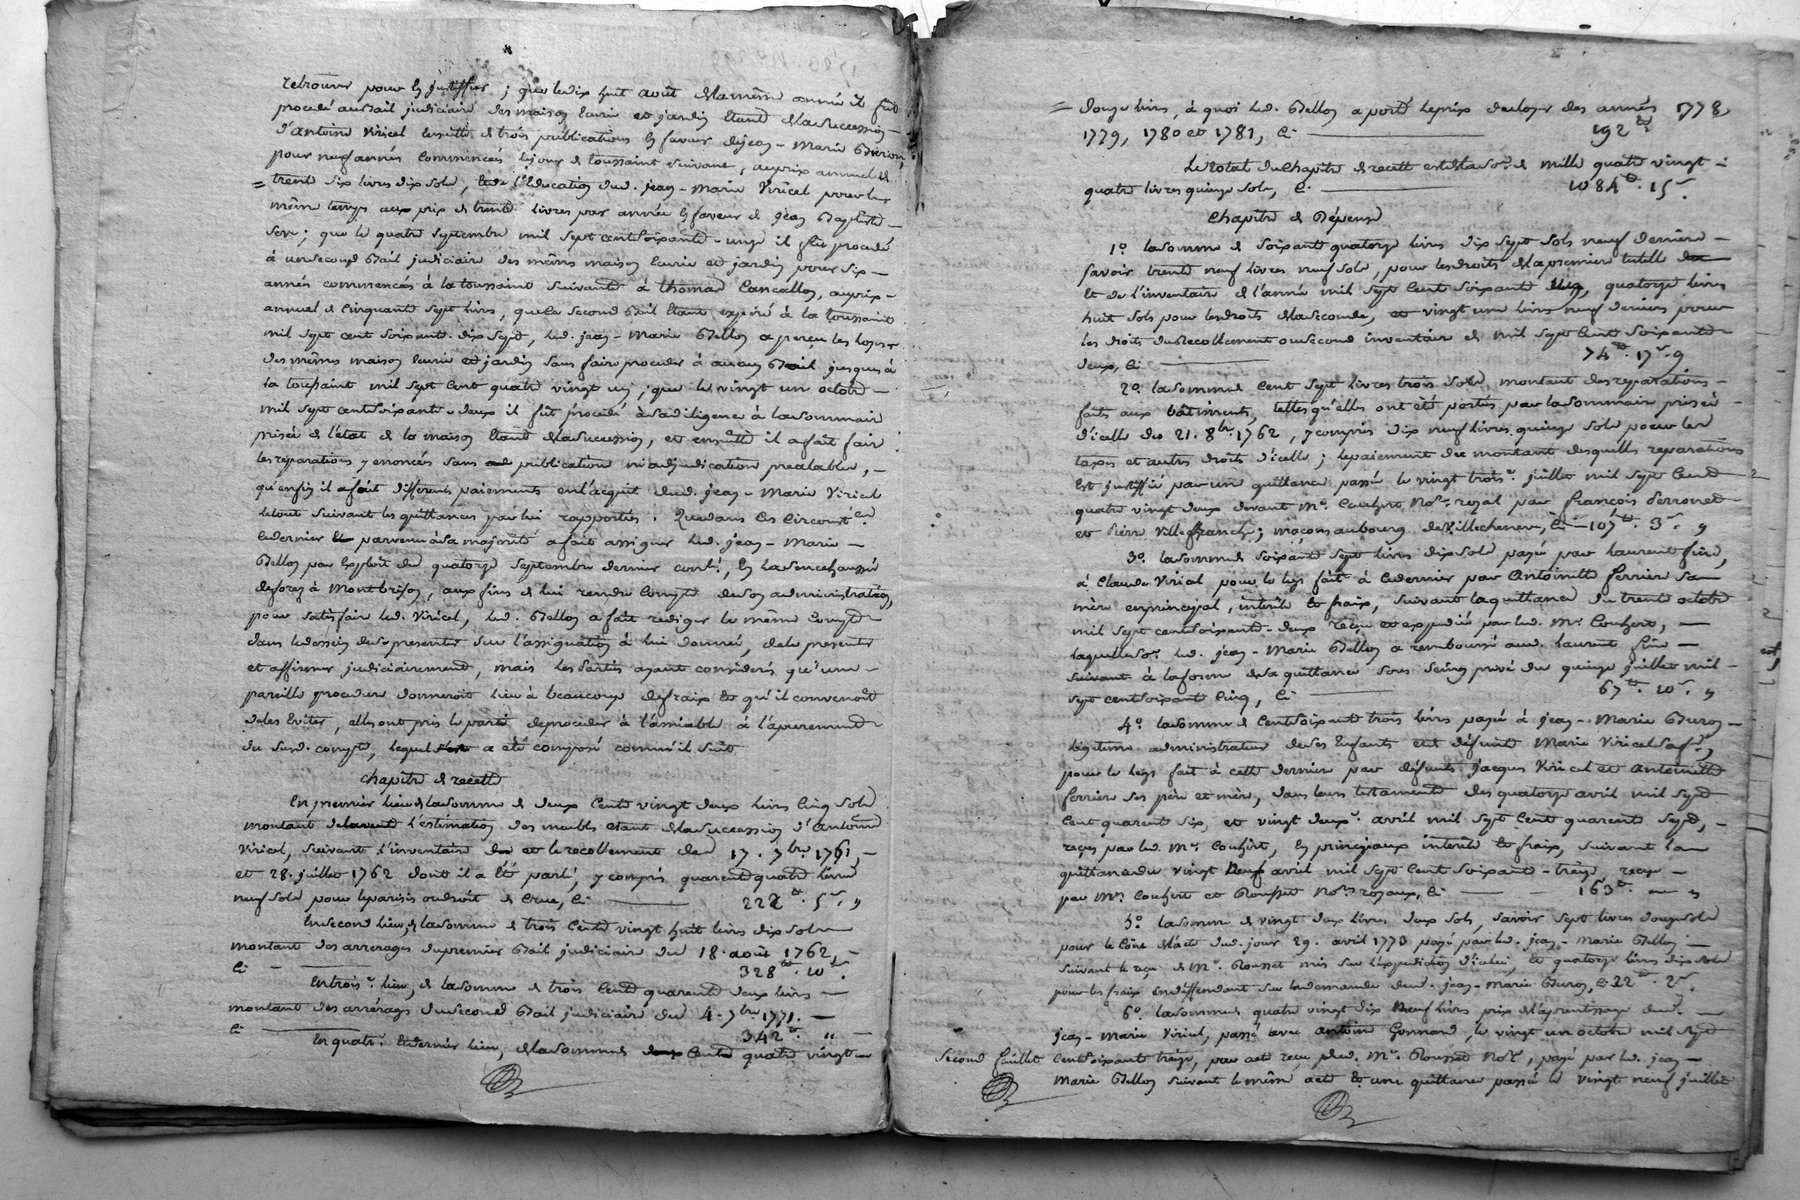 retrouver pour les justiffier ; que le dix huit août de la même année il fut
procédé au bail judiciaire des maison écurie et jardin étant de la succession
d'antoine Viricel ensuitte de trois publications en faveur de jean - Marie
pour neuf années commencées le jour de toussaint suivant, au prix annuel de
trente six livres dix sols, l'éducation dud. jean - Marie Viricel pour le
même temps aux prix de trente livres par année en faveur de jean Baptiste
; que le quatre septembre mil sept cent soixante - onze il fut procédé
à un second Bail judiciaire des mêmes maison écurie et jardin pour six
années commencées à la toussaint suivante à thomas Cancallon, au prix
annuel de cinquante sept livres, que le second Bail étant expiré à la toussaint
mil sept cent soixante dix sept, led. jean - Marie Bellon a perçu les loyers
des mêmes maison écurie et jardin sans faire procéder à aucun Bail jusques à
la toussaint mil sept cent quatre vingt un ; que le vingt un octobre
mil sept cent soixante - deux il fut procédé à sa diligence à la sommaire
prisée de l'état de la maison étant de la succession, et ensuitte il a fait faire
les réparations y enoncées sans publication ni adjudication préalables,
qu'enfin il a fait différents paiements en l'acquit dud. jean - Marie Viricel
le tout suivant les quittances par lui rapportées. Que dans ces circonst.ces
ce dernier parvenu à sa majorité a fait assigner led. jean - Marie
Bellon par exploit du quatorze septembre dernier contlé, en la senechaussée
de forez à Montbrison, aux fins de lui rendre compte de son administration,
pour satisfaire led. Viricel, led. Bellon a fait rediger le même compte
dans le dessein de se presenter sur l'assignation à lui donnée, de le presenter
et affirmer judiciairement, mais les parties ayant considéré qu'une
pareille procedure donneroit lieu à beaucoup de fraix et qu'il convenoit
de les éviter, elles ont pris le parti de proceder à l'amiable à l'apurement
du susd. compte, lequel a été composé comme il suit
chapitre de recette
En premier lieu de la somme de deux cent vingt deux livres cinq sols
montant de l'estimation des meubles étant de la succession d'antoine
Viricel, suivant l'inventaire et le recollement des 17. 7bre 1761,
et 28. juillet 1762 dont il a été parlé, y compris quarante quatre livres
neuf sols pour le parisis ou droit de crue, Ci 222 tt. 5 s. "
En second lieu, de la somme de trois cent vingt huit livres dix sols
montant des arrerages du premier Bail judiciaire du 18. août 1762,
Ci 328 tt. 10 s.
En trois.e lieu, de la somme de trois cent quarante deux livres
montant des arrérages du second Bail judiciaire du 4. 7bre 1771.
Ci 342 tt. "
En quatr.e et dernier lieu, de la somme de cent quatre vingt
douze livres, à quoi led. Bellon a porté le prix du loyer des années 1778,
1779, 1780 et 1781, Ci 192 tt
Le total du chapitre de recette est de la so.e de mille quatre vingt
quatre livres quinze sols, Ci 1084 tt. 15 s.
Chapitre de Dépense
1.o la somme de soixante quatorze livres dix sept sols neuf deniers
savoir trente neuf livres neuf sols, pour les droits de la premiere tutelle
et de l'inventaire de l'année mil sept cent soixante un, quatorze livres
huit sols pour les droits de la seconde, et vingt une livres neuf deniers pour
les droits du recollement ou second inventaire de mil sept cent soixante
deux, Ci 74 tt. 17 s. 9
2.o la somme cent sept livres trois sols montant des reparations
faites aux bâtiments, telles qu'elles ont été portées par la sommaire prisée
d'icelle du 21. 8bre 1762, y compris dix neuf livres quinze sols pour les
taxes et autres droits d'icelle ; le paiement du montant desquelles reparations
est justiffié par une quittance passée le vingt trois.e juillet mil sept cent
quatre vingt deux devant M.e Couhert No.re royal par françois Perronet
et Pierre Villefranche, maçons au bourg de Villechenève, Ci 107 tt. 3 s. "
3.o la somme soixante sept livres dix sols payée par laurent fière,
à Claude Viricel pour le legs fait à ce dernier par Antoinette ferriere sa
mère en principal, intérêts et fraix, suivant la quittance du trente octobre
mil sept cent soixante - deux reçue et expédiée par led. M.e Couhert,
laquelle so.e led. jean - Marie Bellon a remboursé aud. laurent fière
suivant à la forme de sa quittance sous seing privé du quinze juillet mil
sept cent soixante cinq, Ci 67 tt. 10 s. "
4.o la somme de cent soixante trois livres payée à jean - Marie Buron
légitime administrateur de ses enfants et de défunte Marie Viricel sa f.e,
pour le legs fait à cette derniere par défunts jacques Viricel et antoinette
ferriere ses père et mère, dans leurs testaments des quatorze avril mil sept
cent quarante six, et vingt deux.e avril mil sept cent quarante sept,
reçus par led. M.e Couhert, en principaux intérêts et fraix, suivant la
quittance du vingt neuf avril mil sept cent soixante - treize, reçue
par M.es Couhert et Rousset No.res royaux, Ci 163 tt. "
5.o la somme de vingt deux livres deux sols, savoir sept livres douze sols
pour le coût de l'acte dud. jour 29. avril 1773 payé par led. jean - Marie Bellon
suivant le reçu de M.e Rousset mis sur l'expédition d'icelui, et quatorze livres dix sols
pour les fraix en deffendant sur la demande dud. jean - Marie Buron, Ci 22 tt. 2 s.
6.o la somme quatre vingt dix neuf livres prix de l'aprentissage dud.
jean - Marie Viricel, passé avec antoine Gonnard, le vingt un octobre mil sept
second feuillet cent soixante treize, par acte reçu p.r led. M.e Rousset No.re, payé par led. jean
Marie Bellon suivant le même acte et une quittance passée le vingt neuf juillet